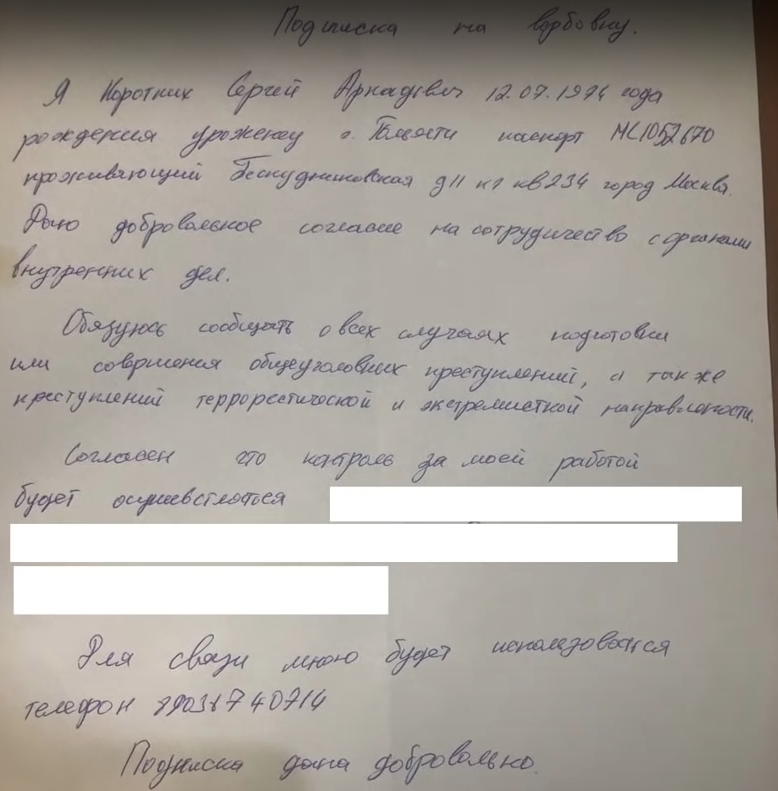 Подписка на вербовку.
Я Коротких Сергей Аркадьевич 12.07.1974 года
рождения уроженец г. Тольятти паспорт МС1052670
проживающий Бескудниковская д11 к1 кв234 город Москва.
Даю добровольное согласие на сотрудичество с органами
внутренних дел.
Обязуюсь сообщать о всех случаях подготовки
или совершения общеуголовных преступлений, а также
преступлений террорестической и экстремисткой направлености.
Согласен что контроль за моей работой
будет осущевстлятся
Для связи мною будет использоватся
телефон 89036740714
Подписка дана добровольно.